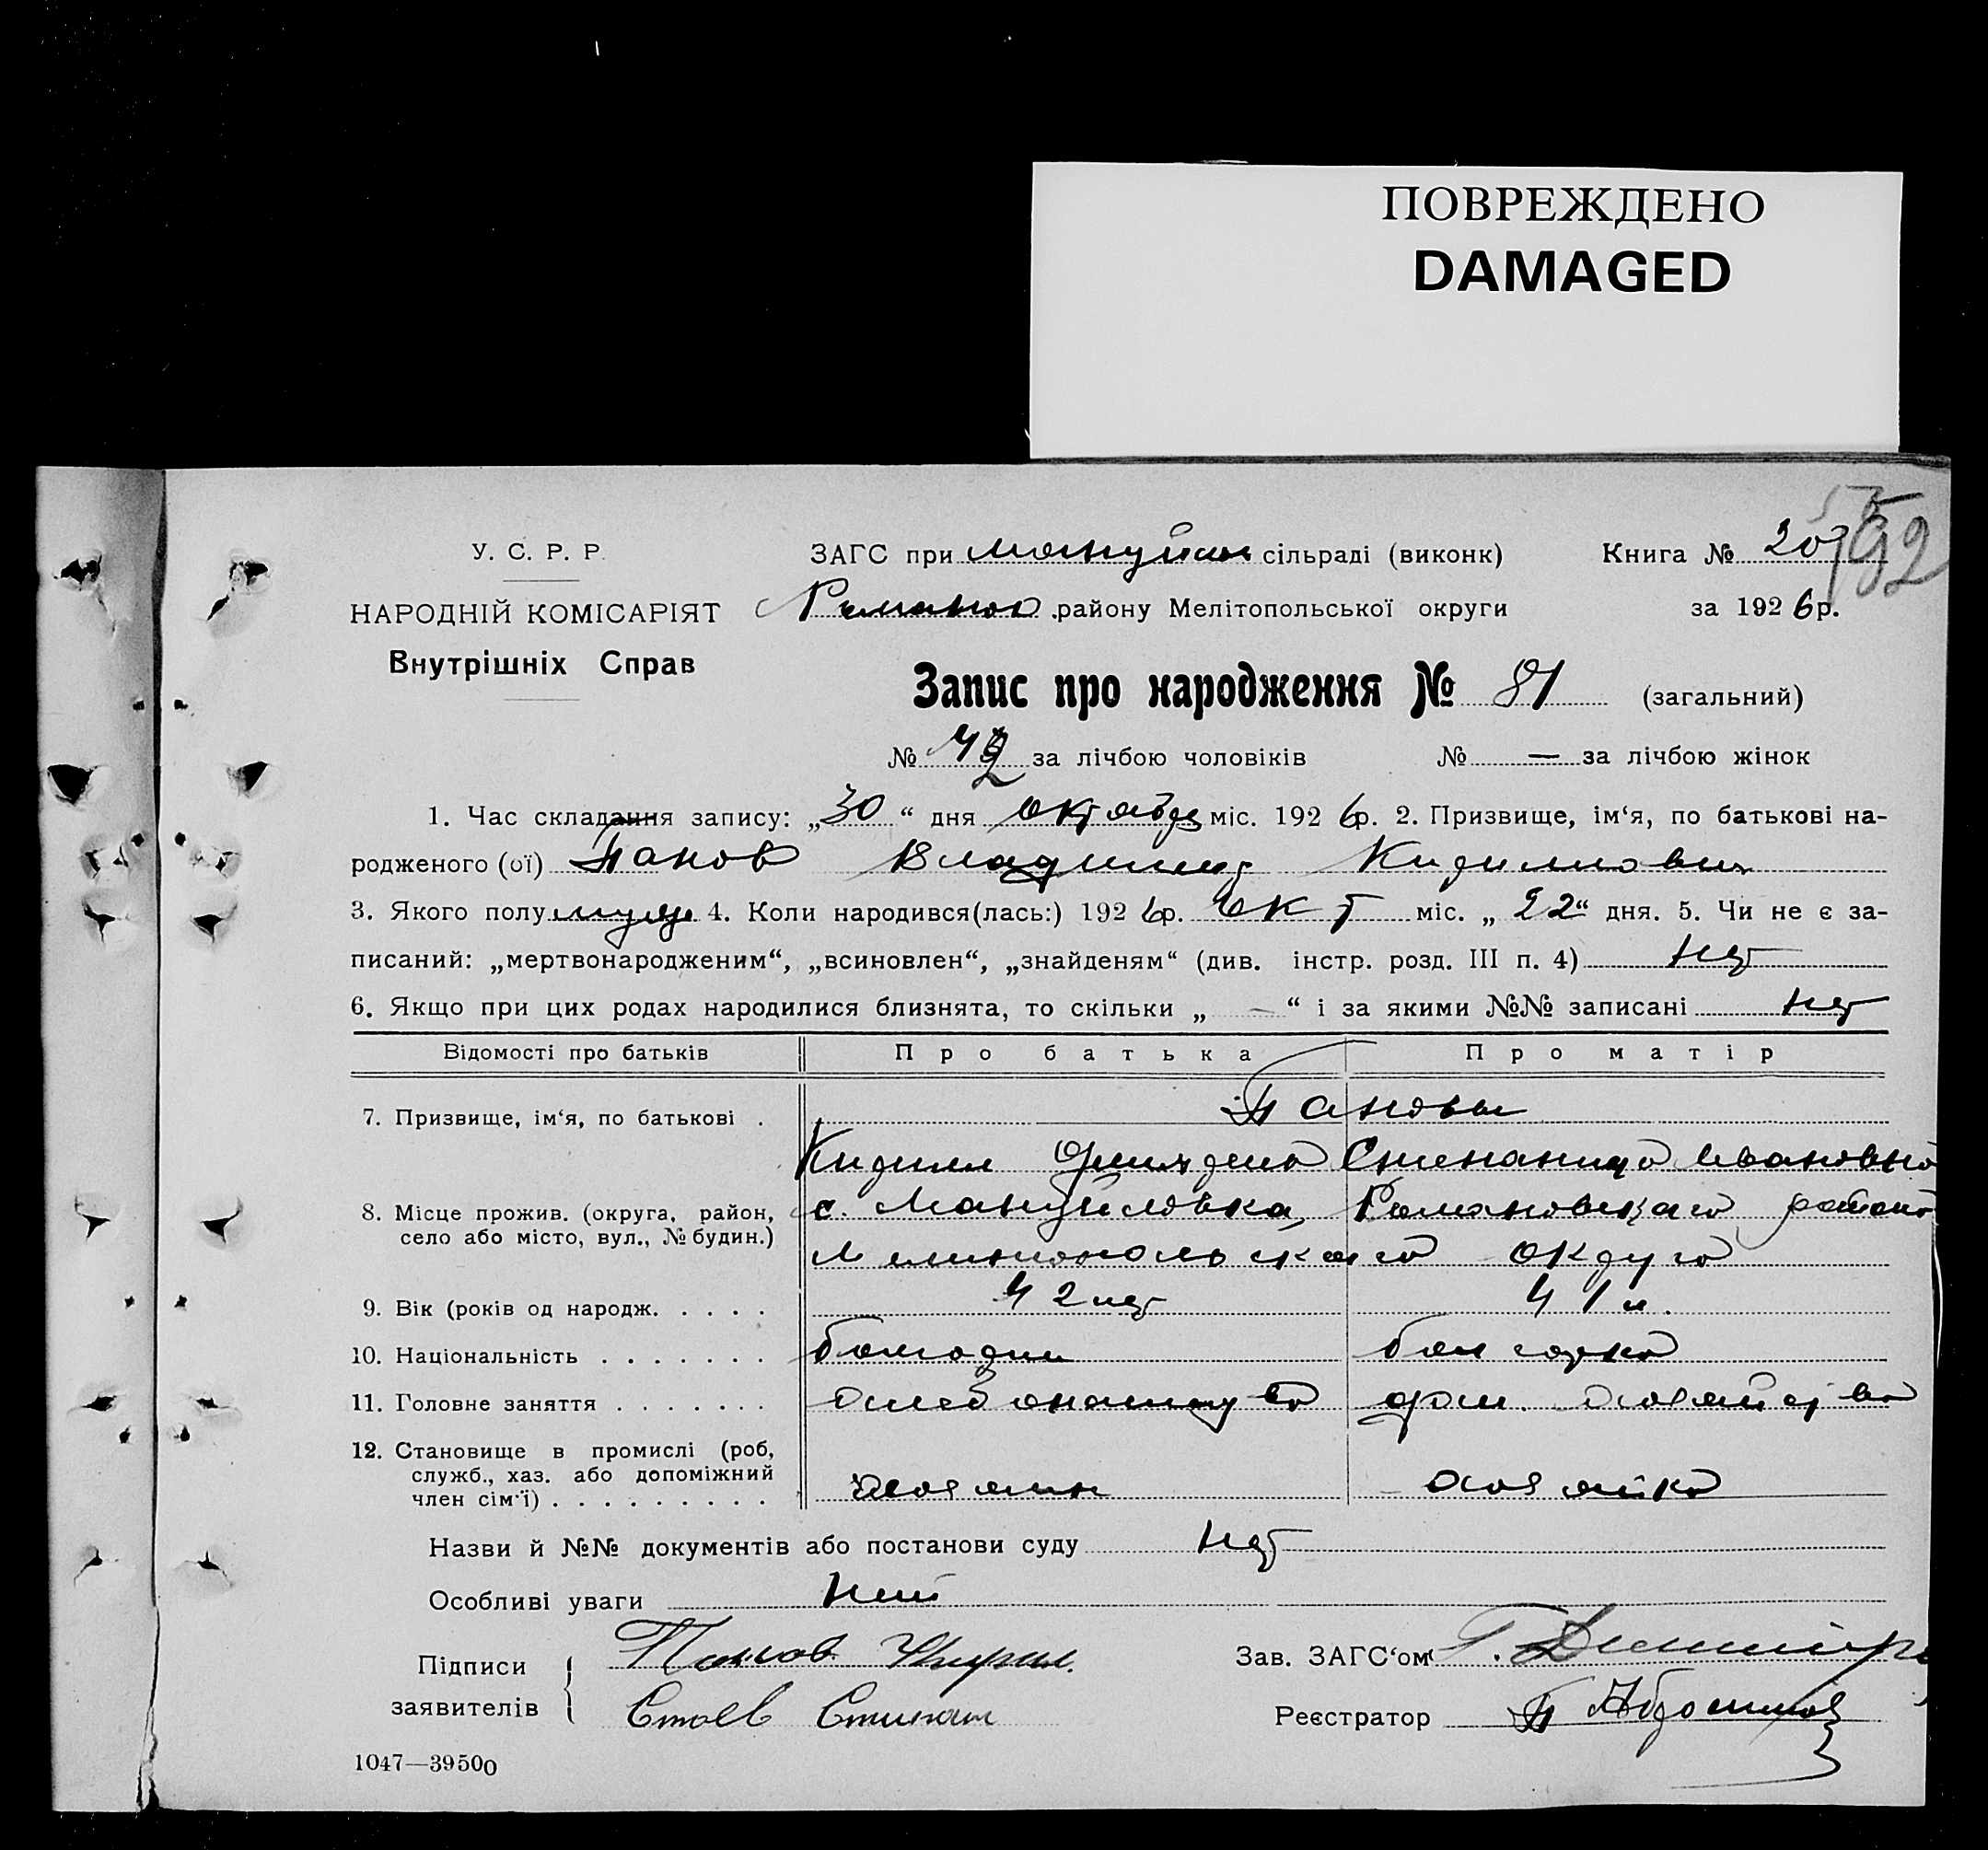 ПОВРЕЖДЕНО
DAMAGED
92
У. С. Р. Р.
НАРОДНІЙ КОМІСАРІЯТ
Внутрішніх Справ
ЗАГС при Мануйлов сільраді (виконк)
Романов. району Мелітопольської округи
Книга № 20
за 1926 р.
Запис про народження № 81 (загальний)
№ 42 за лічбою чоловіків № — за лічбою жінок
1. Час складання запису: „30“ дня октября міс. 1926 р. 2. Призвище, ім‘я, по батькові на-
родженого (ої) Панов Владимир Кириллович
3. Якого полу муж 4. Коли народився(лась:) 1926 р. Окт міс. „22“ дня. 5. Чи не є за-
писаний: „мертвонародженим“, „всиновлен“, „знайденям“ (див. інстр. розд. III п. 4) нет
6. Якщо при цих родах народилися близнята, то скільки „—“ і за якими №№ записані нет
Відомості про батьків Про батька Про матір
7. Призвище, ім‘я, по батькові . Пановы
Кирилл Степанида Ивановна
8. Місце прожив. (округа, район, село або місто, вул., № будин.) с. Мануйловка, Романовского района
Мелитопольского округа
9. Вік (років од народж. . . . . 42 лет 41 л.
10. Національність . . . . . . . болгарин болгарка
11. Головне заняття . . . . . . . хлебопашество дом. хозяйство
12. Становище в промислі (роб, служб., хаз. або допоміжний член сім‘ї) . . . . . . . . . хозяин хозяйка
Назви й №№ документів або постанови суду нет
Особливі уваги нет
Підписи заявителів { Панов Кирил.
Стоев Степан
Зав. ЗАГС‘ом
Реєстратор
1047—39500